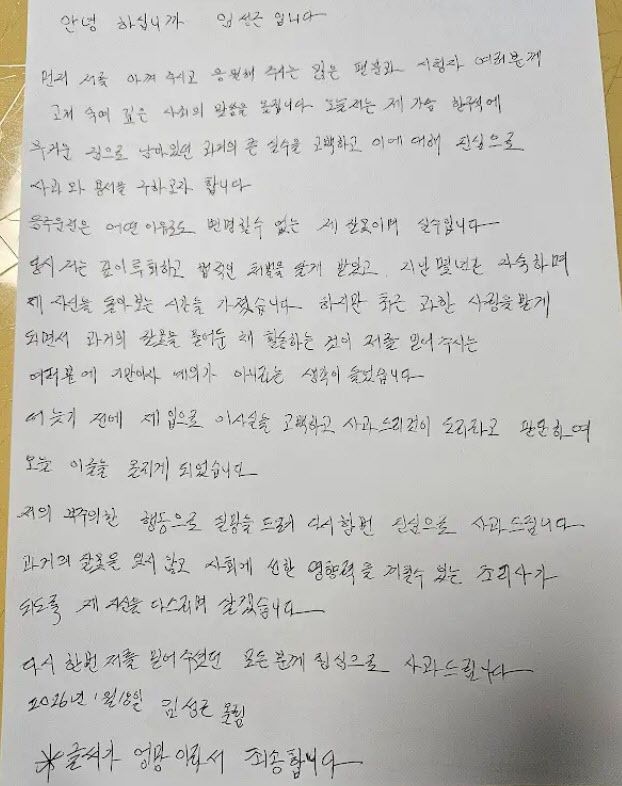 안녕 하십니까 임성근 입니다
먼저 저를 아껴 주시고 응원해 주시는 많은 팬분과 시청자 여러분께
고개 숙여 깊은 사죄의 말씀을 올립니다 오늘 저는 제 가슴 한구석에
무거운 짐으로 남아있던 과거의 큰 실수를 고백하고 이에 대해 진심으로
사과와 용서를 구하고자 합니다
음주운전은 어떤 이유로도 변명할수 없는 제 잘못이며 실수입니다
당시 저는 깊이 후회하고 법적인 처벌을 달게 받았고, 지난 몇년간 자숙하며
제 자신을 돌아보는 시간을 가졌습니다 하지만 최근 과한 사랑을 받게
되면서 과거의 잘못을 묻어둔 채 활동하는 것이 저를 믿어 주시는
여러분에 기만이자 예의가 아니라는 생각이 들었습니다
더 늦기 전에 제 입으로 이사실을 고백하고 사과 드리것이 도리라고 판단하여
오늘 이글을 올리게 되었습니다
저의 부주의한 행동으로 실망을 드려 다시한번 진심으로 사과드립니다
과거의 잘못을 잊지 않고 사회에 선한 영향력을 끼칠수 있는 조리사가
되도록 제 자신을 다스리며 살겠습니다
다시 한번 저를 믿어 주셨던 모든 분께 진심으로 사과드립니다
2026년 1월 18일 임성근 올림
*글씨가 엉망 이라서 죄송합니다